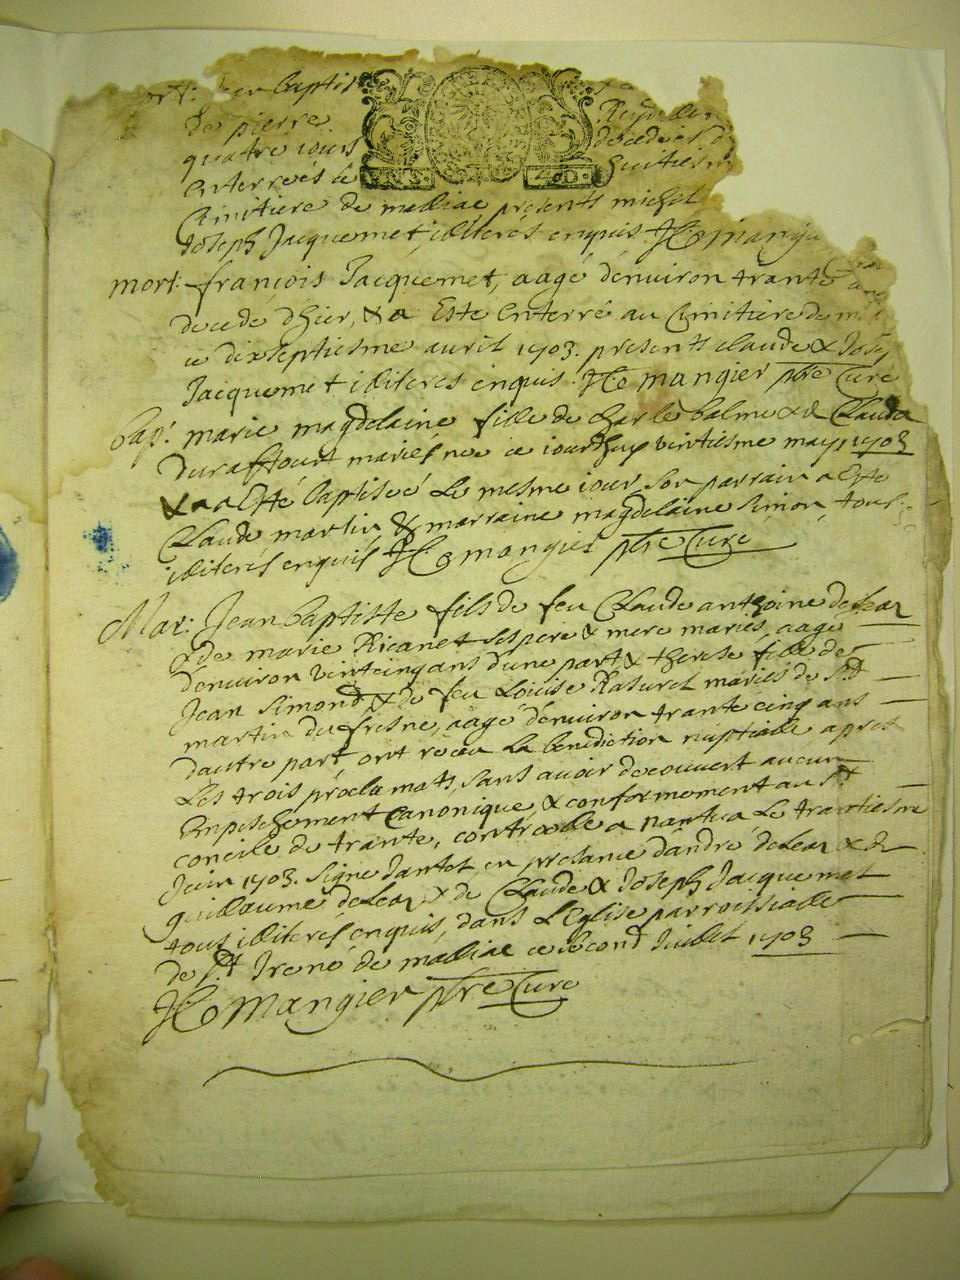 Jean baptis
de pierre
quatre jours decede
enterrées
Cimitiere de malliac presents michel
Joseph Jacquemet illiterés enquis. He mangi
mort: françois Jacquemet, aagé d'environ trante
decedé d'hier, & a Esté enterré au Cimitiere de m
ce dixseptiesme avril 1703. presents claude & Josep
Jacquemet illiteres enquis. He mangier pbre Curé
bap: marie magdelaine fille de Charle balme & de Clauda
Duraffourt mariés née ce jourdhuy vintiesme may 1703
& a Esté baptiseé Le mesme jour, son parrain a Esté
Claude martin & marraine magdelaine Simon, tous
illiterés enquis He mangier pbre Curé
Mar: Jean baptiste fils de feu Claude anthoine deLear
& de marie Ricanet ses pere & mere mariés, aagé
d'environ vintcinq ans d'une part & therese fille de
Jean Simond & de feu Louise Raturel mariés de St
martin du fresne, aagé d'environ trante cinq ans
dautre part, ont receu La benediction nuptialle apres
Les trois proclamats, sans avoir decouvert aucun
Empeschement Canonique, & conformement au St
concile de trante, controolle a nantua Le trantiesme
Juin 1703. signe Jantet, en presance d'andré deLear & de
guillaume deLear & de Claude & Joseph Jacquemet
tous illiterés enquis, dans L'Eglise parroissialle
de St Irené de malliac ce second Juillet 1703
He Mangier pbre Curé